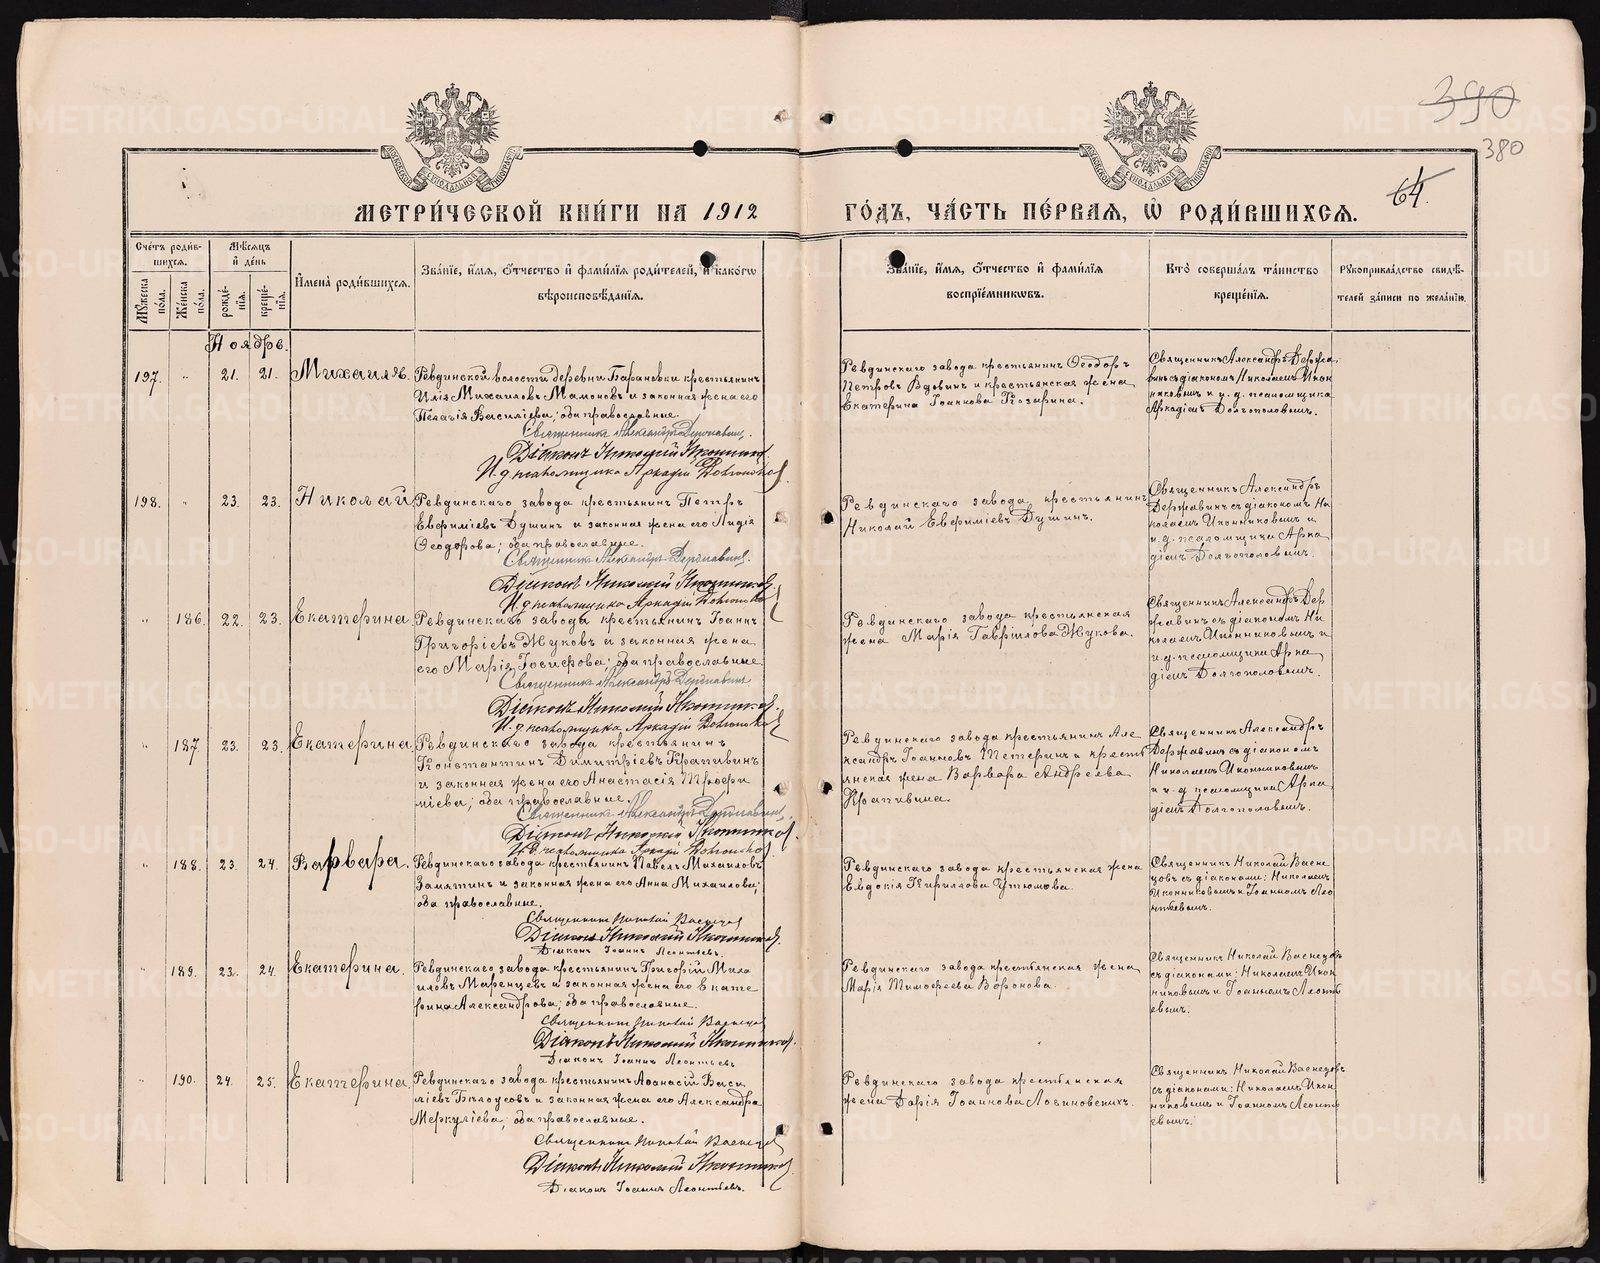 390
380
64.
МЕТРИ́ЧЕСКОЙ КНИ́ГИ НА 1912
ГО́ДЪ, ЧА́СТЬ ПЕ́РВАЯ, Ѡ҆ РОДИ́ВШИХСЯ.
Сче́тъ роди́в-
шихся.
Мꙋ́жеска по́ла.
Же́нска по́ла.
Мѣ́сяцъ
и҆ де́нь
рожде́-нїя.
креще́-нїя.
И҆мена̀ роди́вшихся.
Зва́нїе, и҆́мя, ѻ҆́тчество и҆ фами́лїя роди́телей, и҆ како́гѡ
вѣроисповѣ́данїя.
Зва́нїе, и҆́мя, ѻ҆́тчество и҆ фами́лїя
воспрїе́мникѡвъ.
Кто̀ соверша́лъ та́инство
креще́нїя.
Рꙋкоприкла́дство свидѣ́-
телей за́писи по жела́нїю.
Ноябрь.
197. " 21. 21. Михаилъ.
Ревдинской волости деревни Барановки крестьянинъ
Илія Михаиловъ Мамоновъ и законная жена его
Пелагія Василіева; оба православные.
Священникъ Александръ Державинъ.
Діаконъ Николай Иконниковъ.
И. д. псаломщика Аркадій Долгополовъ
Ревдинскаго завода крестьянинъ Ѳеодоръ
Петровъ Вдовинъ и крестьянская жена
Екатерина Іоаннова Козырина.
Священникъ Александръ Держа
винъ съ діакономъ Николаемъ Икон
никовымъ и и. д. псаломщика
Аркадіемъ Долгополовымъ.
198. " 23. 23. Николай
Ревдинскаго завода крестьянинъ Петръ
Евфиміевъ Душинъ и законная жена его Лидія
Ѳеодорова; оба православные.
Священникъ Александръ Державинъ.
Діаконъ Николай Иконниковъ
И. д. псаломщика Аркадій Долгополовъ
Ревдинскаго завода крестьянинъ
Николай Евфиміевъ Душинъ.
Священникъ Александръ
Державинъ съ діакономъ Ни
колаемъ Иконниковымъ и
и. д. псаломщика Арка
діемъ Долгополовымъ.
" 186. 22. 23. Екатерина
Ревдинскаго завода крестьянинъ Іоаннъ
Григоріевъ Жуковъ и законная жена
его Марія Іосифова; оба православные
Священникъ Александръ Державинъ
Діаконъ Николай Иконниковъ.
И. д. псаломщика Аркадій Долгополовъ
Ревдинскаго завода крестьянская
жена Марія Гавріилова Жукова.
Священникъ Александръ Дер
жавинъ съ діакономъ Ни
колаемъ Иконниковымъ и
и. д. псаломщика Арка
діемъ Долгополовымъ.
" 187. 23. 23. Екатерина.
Ревдинскаго завода крестьянинъ
Константинъ Димитріевъ Крапивинъ
и законная жена его Анастасія Трофи
міева; оба православные.
Священникъ Александръ Державинъ.
Діаконъ Николай Иконниковъ.
И. д. псаломщика Аркадій Долгополовъ
Ревдинскаго завода крестьянинъ Але
ксандръ Іоанновъ Петеринъ и кресть
янская жена Варвара Андреева
Крапивина.
Священникъ Александръ
Державинъ съ діакономъ
Николаемъ Иконниковымъ
и и. д. псаломщика Арка
діемъ Долгополовымъ.
" 188. 23. 24. Варвара.
Ревдинскаго завода крестьянинъ Павелъ Михаиловъ
Замятинъ и законная жена его Анна Михаилова;
оба православные.
Священникъ Николай Васнецовъ
Діаконъ Николай Иконниковъ.
Діаконъ Іоаннъ Леонтьевъ.
Ревдинскаго завода крестьянская жена
Евдокія Кириллова Утюмова.
Священникъ Николай Васне
цовъ съ діаконами: Николаемъ
Иконниковымъ и Іоанномъ Лео
нтьевымъ.
" 189. 23. 24. Екатерина.
Ревдинскаго завода крестьянинъ Григорій Миха
иловъ Маренцевъ и законная жена его Екате
рина Александрова; оба православные.
Священникъ Николай Васнецовъ
Діаконъ Николай Иконниковъ.
Діаконъ Іоаннъ Леонтьевъ
Ревдинскаго завода крестьянская жена
Марія Тимофеева Воронова.
Священникъ Николай Васнецовъ
съ діаконами: Николаемъ Икон
никовымъ и Іоанномъ Леонть
евымъ.
" 190. 24. 25. Екатерина.
Ревдинскаго завода крестьянинъ Аѳанасій Васи
ліевъ Бѣлоусовъ и законная жена его Александра
Меркуліева; оба православные.
Священникъ Николай Васнецовъ
Діаконъ Николай Иконниковъ.
Діаконъ Іоаннъ Леонтьевъ.
Ревдинскаго завода крестьянская
жена Дарія Іоаннова Логиновскихъ.
Священникъ Николай Васнецовъ
съ діаконами: Николаемъ Икон
никовымъ и Іоанномъ Леонть
евымъ.
METRIKI.GASO-URAL.RU